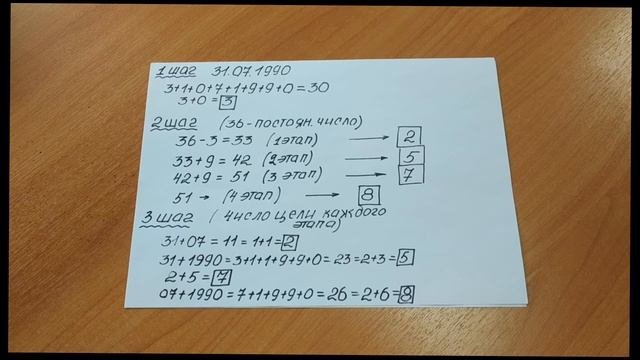 1 шаг 31.07.1990
3+1+0+7+1+9+9+0=30
3+0=3
2 шаг (36-постоян. число)
36-3=33 (1 этап) → 2
33+9=42 (2 этап) → 5
42+9=51 (3 этап) → 7
51 → (4 этап) → 8
3 шаг (число цели каждого
этапа)
31+07=11=1+1=2
31+1990=3+1+1+9+9+0=23=2+3=5
2+5=7
07+1990=7+1+9+9+0=26=2+6=8